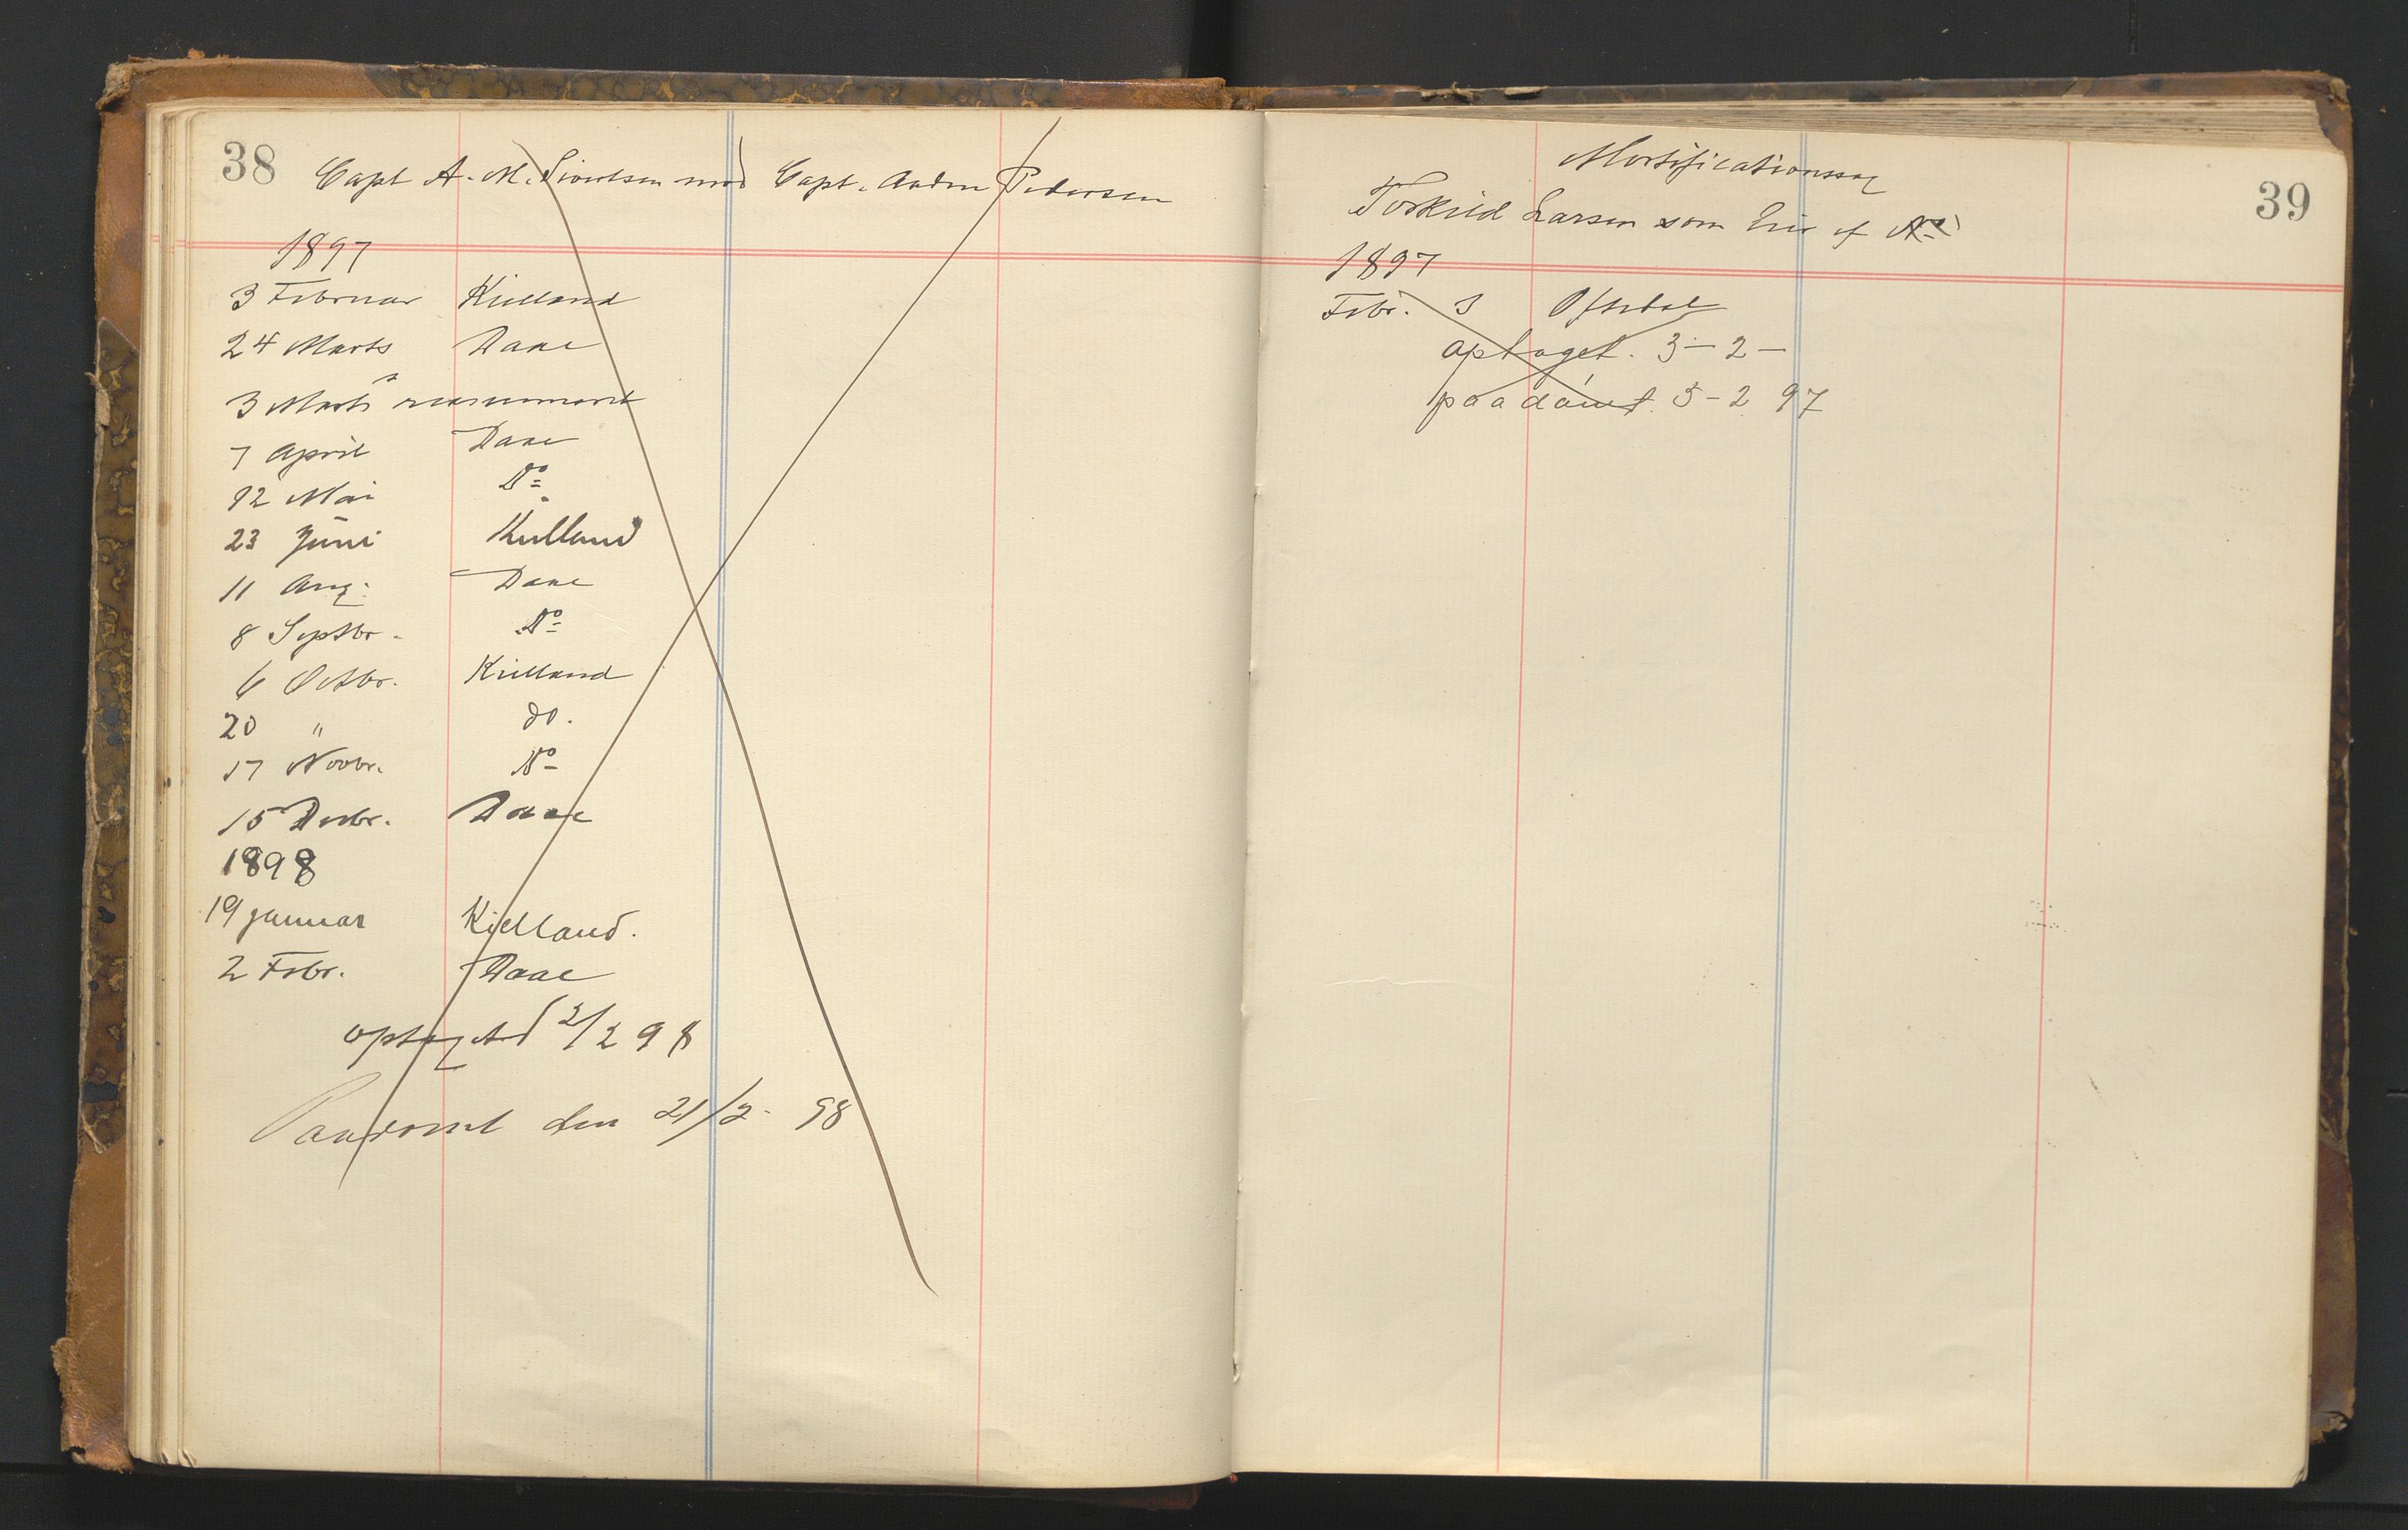 38
Capt A. M. Sivertsen mod Capt. Anders Pedersen
1897
3 Februar Kielland
24 Marts Daae
3 Marts reassumeret
7 April Daae
12 Mai Do
23 Juni Kielland
11 Aug: Daae
8 Septbr. Do
6 Octbr. Kielland
20 " do.
17 Novbr. Do
15 Decbr. Daae
1898
19 januar Kielland.
2 Febr. Daae
optaget 2/2 98
Paadømt den 21/2 - 98
39
Mortificationssag
Torkild Larsen som Eier af
1897
Febr. 3 Oftedal
optaget. 3-2-
paadømt. 3-2 97